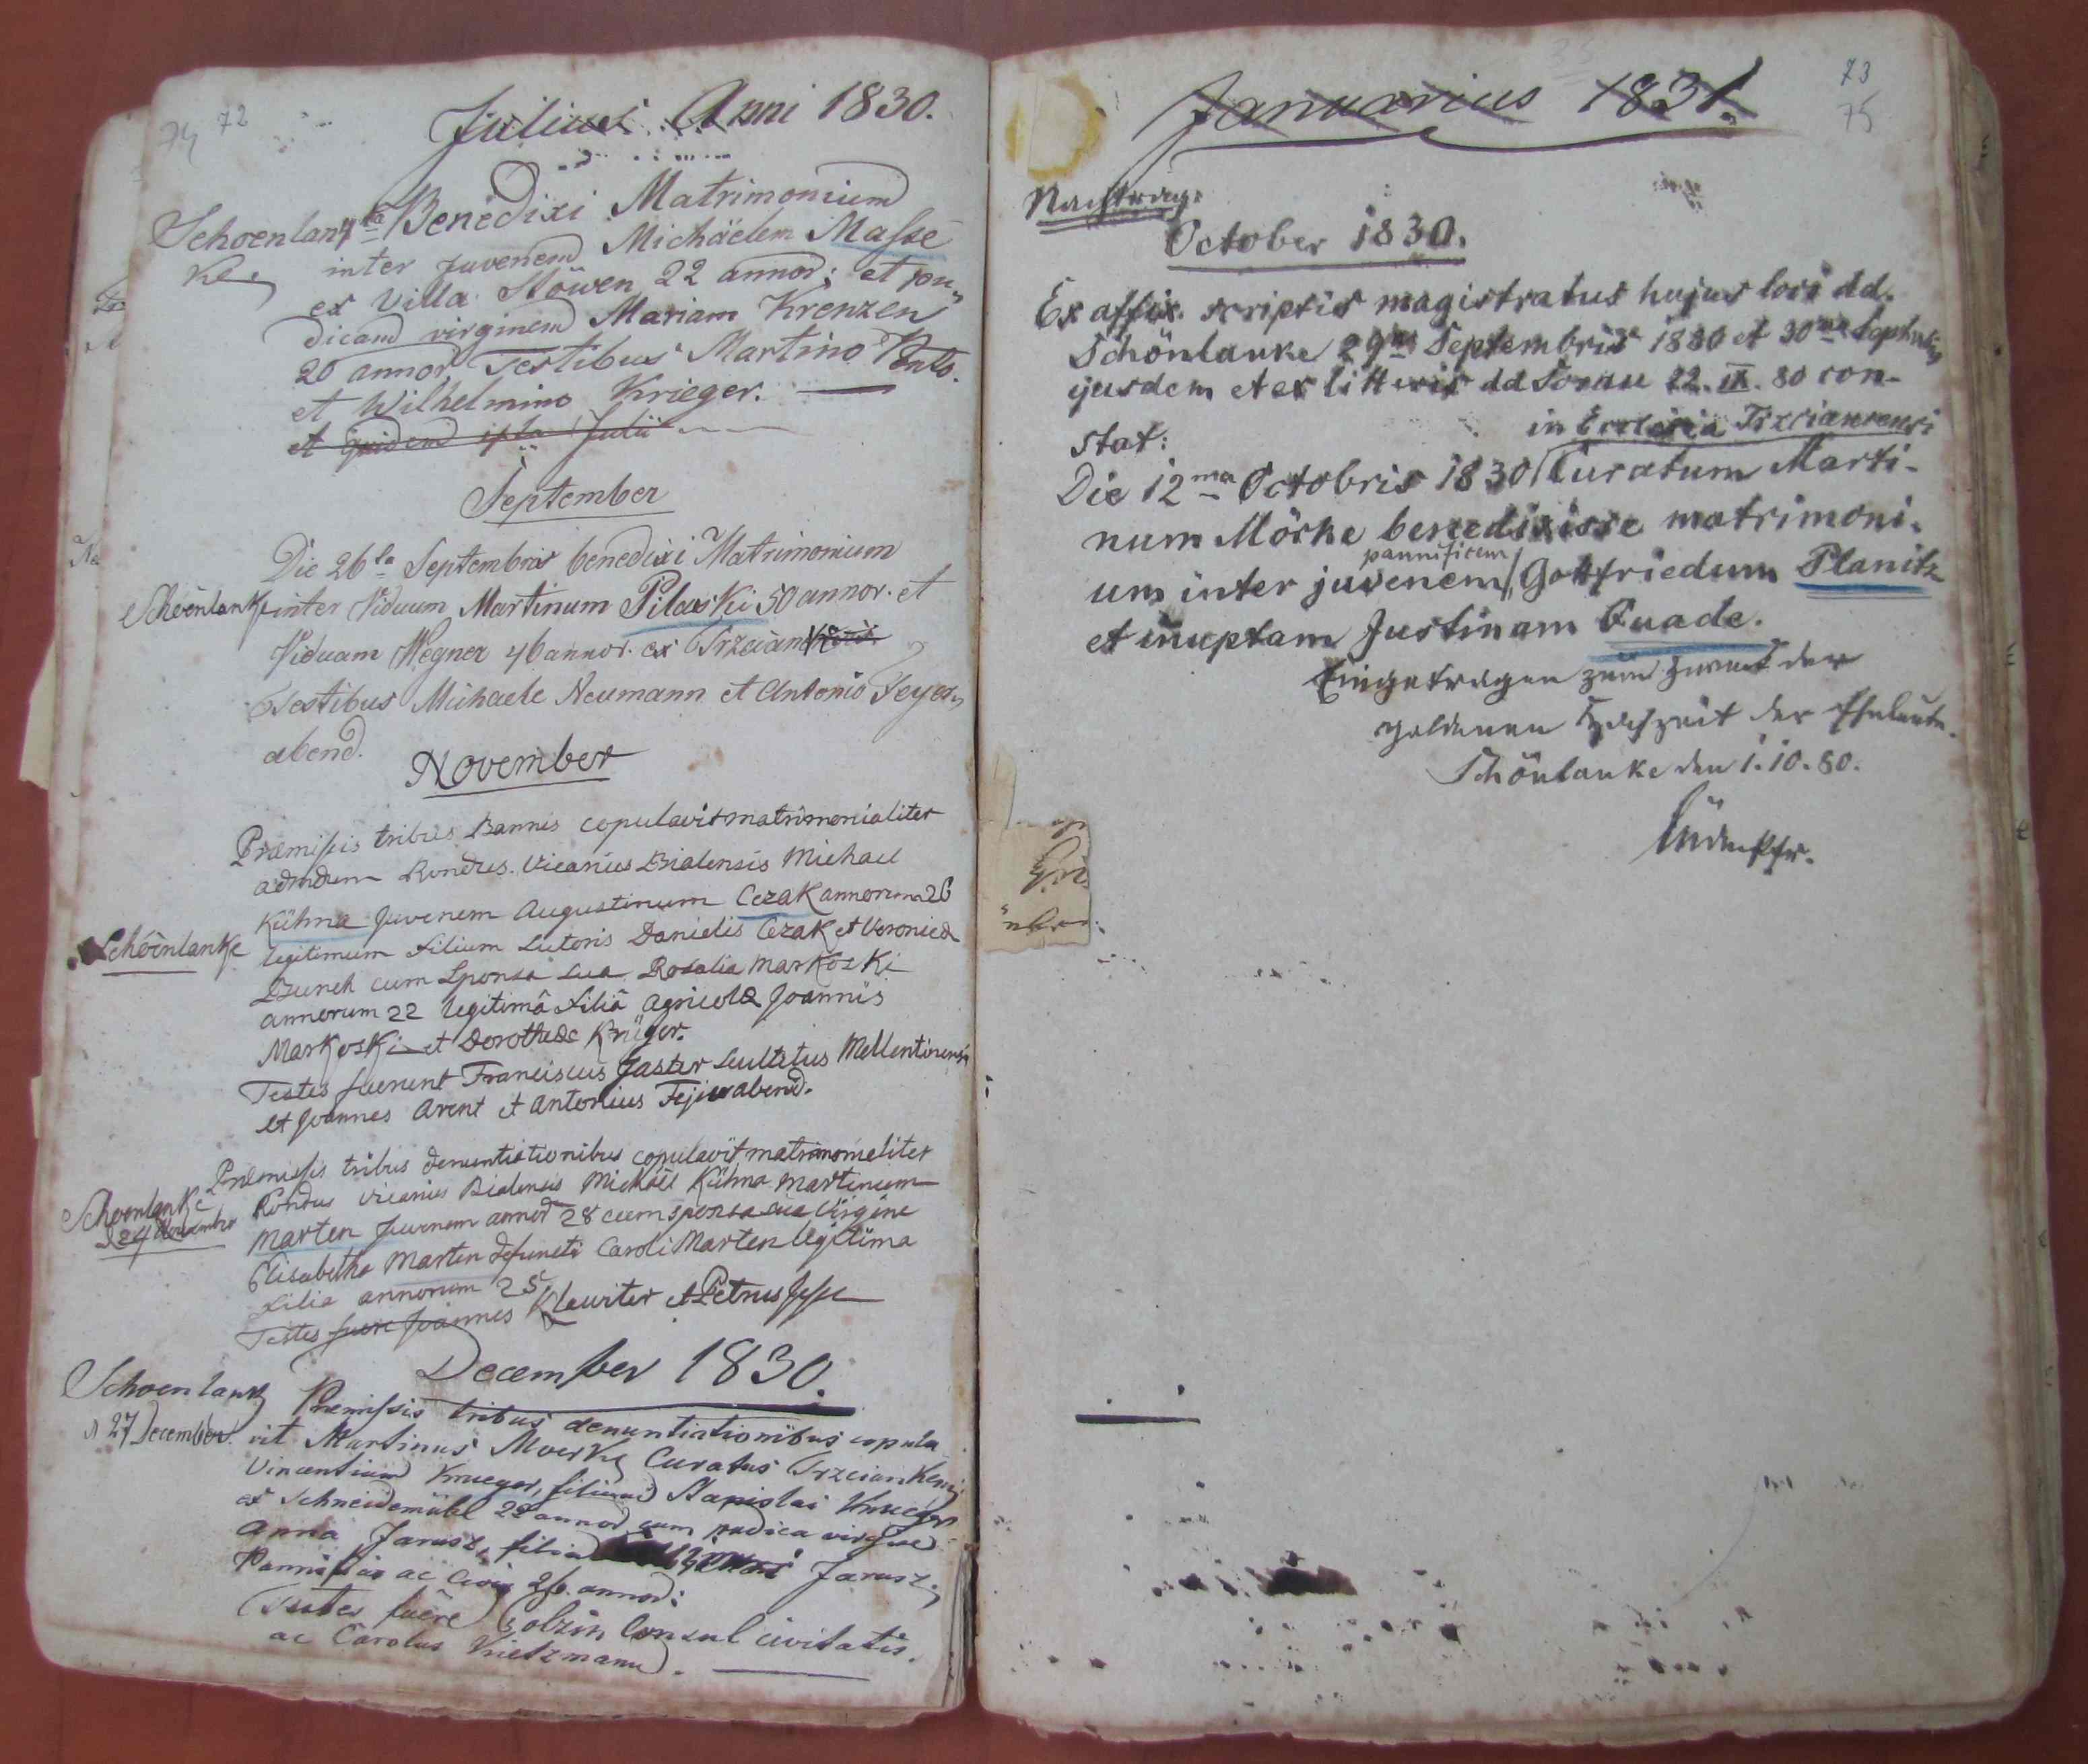 72
74
Julius Anni 1830.
Schoenlan 4ta Benedixi Matrimonium
ke. inter Juvenem Michäelem Masse
ex Villa Stöwen 22 annor: et pu=
dicam virginem Mariam Krenzen
20 annor Testibus Martino
et Wilhelmino Krieger.
et quidem Julii
September
Die 26ta Septembris benedixi Matrimonium
Schöenlanke inter Viduum Martinum Pilarski 50 annor. et
Viduam Wegner 46 annor. ex Trzcianke
Testibus Michaele Neumann et Antonio Feyer=
abend.
November
Præmissis tribus Bannis copulavit matrimonialiter
admdum Rondus. Vicarius Bialensis Michael
Kühna Juvenem Augustinum Cezak annorum 26
Schöenlanke
legitimum filium Sutoris Danielis Cezak et Veronica
cum Sponsa sua Rosalia Markoski
annorum 22 legitimâ filiâ agricolæ Joannis
Markoski et Dorotheæ Krüger.
Testes fuerunt Franciscus Jaster Scultetus Mellentinensis
et Joannes Arent et Antonius Fejerabend.
Præmissis tribus denuntiationibus copulavit matrimonialiter
Schoenlanke
d 24 Novembr
Rondus Vicarius Bialensis Michäel Kühna Martinum
Marten Juvenem annor 28 cum sponsa sua Virgine
Elisabetha Marten defuncti Caroli Marten legitima
filia annorum 25
Testes fuere Joannes Klawiter et Petrus Jesse
December 1830.
Schoenlank Premissis tribus denuntiationibus copula
d 27 December. vit Martinus Moerke Curatus Trzciankensis
Vincentium Krueger, filium Stanislai Krueger
ex Schneidemühl 22 annor cum pudica virgine
Anna Jarusz, filia Jarusz.
Pannificis ac Civis 26 annor:
Testes fuêre Golzin Consul civitatis.
ac Carolus Krietzmann.
73
75
Januarius 1831.
Nachtrag:
October 1830.
Ex affix. scriptis magistratus hujus loci dd.
Schönlanke 29na Septembris 1880 et 30ma Septembris
ejusdem et ex litteris dd Sorau 22. IX. 80 con-
stat:
in Ecclesia Trzciankensi
Die 12ma Octobris 1830 Curatum Marti-
num Mörke benedixisse matrimoni-
pannificem
um inter juvenem Gottfriedum Planitz
et inuptam Justinam Quade.
Eingetragen zum Zweck der
goldenen Hochzeit der Eheleute.
Schönlanke den 1.10.80.